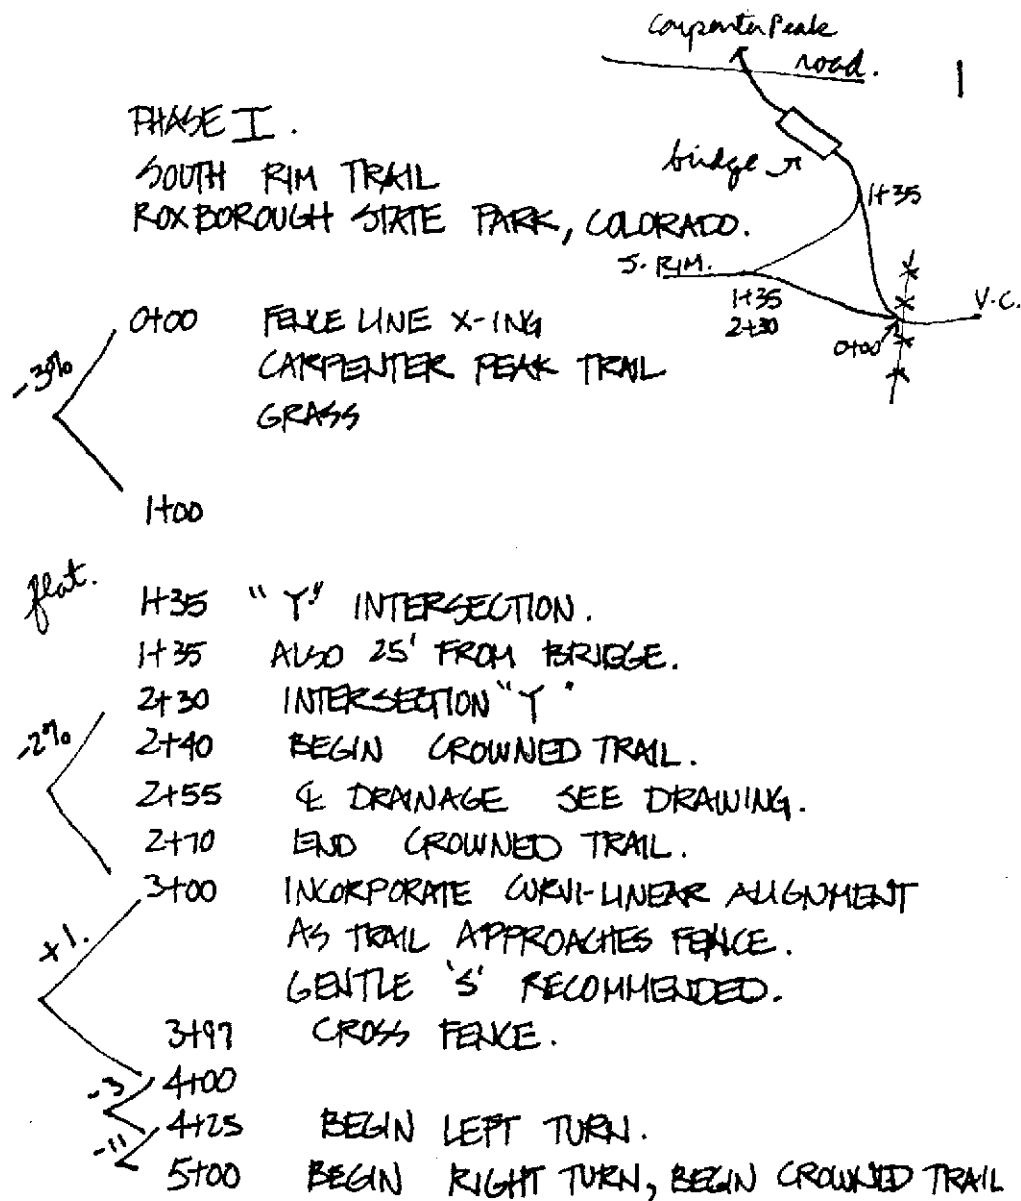 Carpenter Peak
road.
1
PHASE I.
SOUTH RIM TRAIL
ROXBOROUGH STATE PARK, COLORADO.
bridge
1+35
S. RIM.
1+35
2+30
0+00
V.C.
0+00 FENCE LINE X-ING
-3%
CARPENTER PEAK TRAIL
GRASS
1+00
flat.
1+35 "Y" INTERSECTION.
1+35 ALSO 25' FROM BRIDGE.
2+30 INTERSECTION "Y"
-2%
2+40 BEGIN CROWNED TRAIL.
2+55 ℄ DRAINAGE SEE DRAWING.
2+70 END CROWNED TRAIL.
3+00 INCORPORATE CURVI-LINEAR ALIGNMENT
+1.
AS TRAIL APPROACHES FENCE.
GENTLE 'S' RECOMMENDED.
3+97 CROSS FENCE.
-3
4+00
4+25 BEGIN LEFT TURN.
-11
5+00 BEGIN RIGHT TURN, BEGIN CROWNED TRAIL